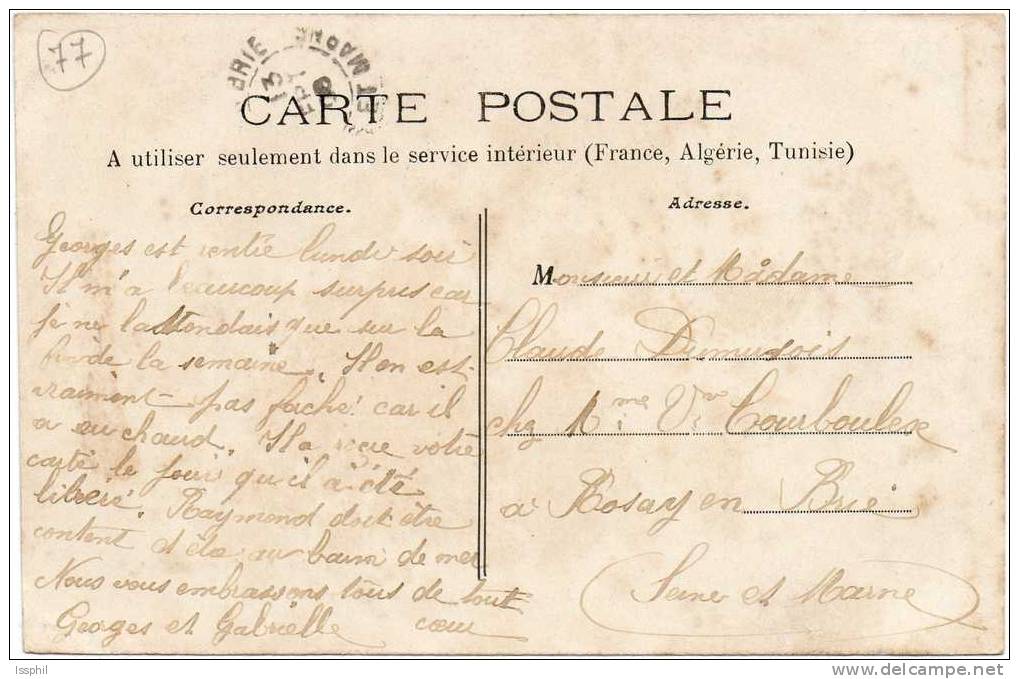 77
BRIE
MARNE
13
CARTE POSTALE
A utiliser seulement dans le service intérieur (France, Algérie, Tunisie)
Correspondance.
Georges est rentré lundi soir
Il m'a beaucoup surpris car
je ne l'attendais que sur la
fin de la semaine. Il en est
vraiment pas faché car il
a eu chaud. Il a recu votre
carte le jour qu'il a été
liberé. Raymond doit être
content d'etre au bain de mer
Nous vous embrassons tous de tout
Georges et Gabrielle coeur
Adresse.
Monsieur et Madame
Claude
chz Mme Vve
à Rosay en Brie
Seine et Marne
Issphil
www.delcampe.net